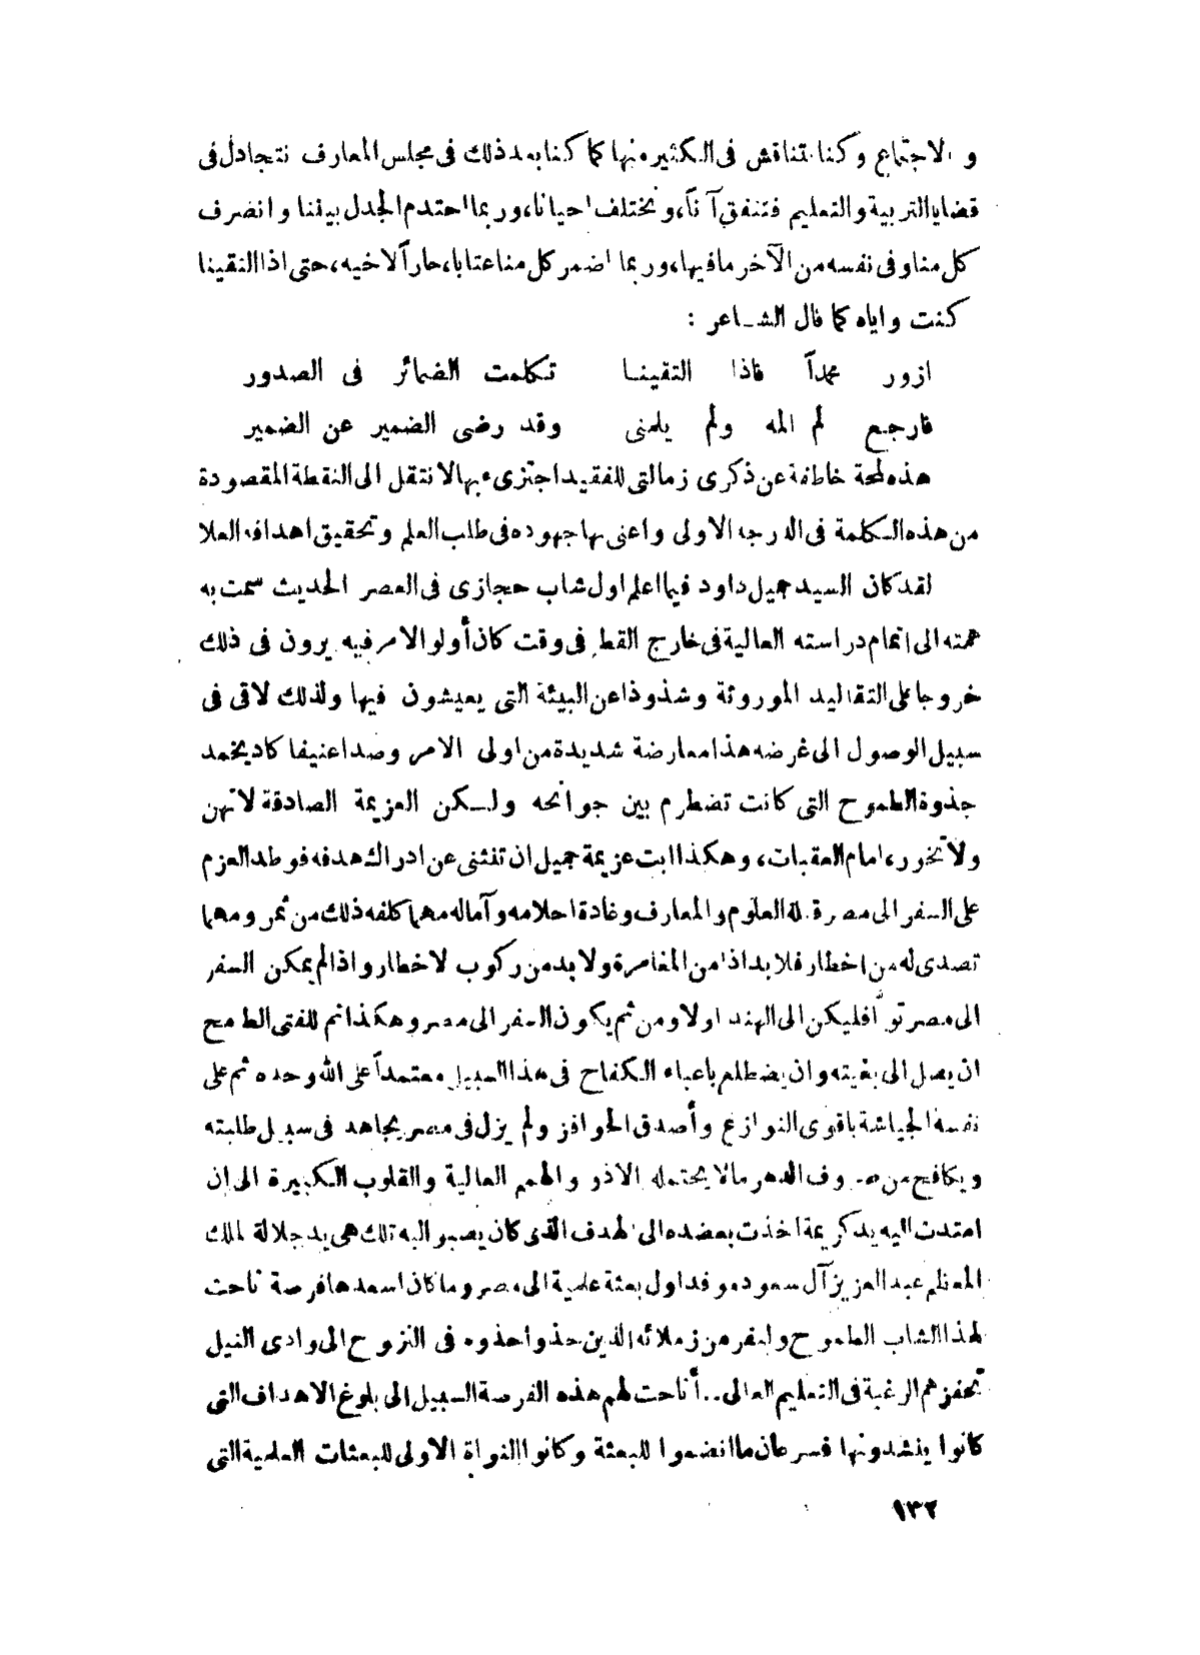 والاجتماع وكنا نتناقش فى الكثير منها كما كنا بعد ذلك فى مجلس المعارف نتجادل فى
قضايا التربية والتعليم فنتفق آناً، ونختلف احيانا، وربما احتدم الجدل بيننا وانصرف
كل منا وفى نفسه من الآخر ما فيها، وربما اضمر كل منا عتابا، حاراً لاخيه، حتى اذا التقينا
كنت واياه كما قال الشاعر :
ازور محمداً فاذا التقينا تكلمت الضمائر فى الصدور
فارجع لم المه ولم يلمنى وقد رضى الضمير عن الضمير
هذه لمحة خاطفة عن ذكرى زمالتى للفقيد اجتزىء بها لانتقل الى النقطة المقصودة
من هذه الكلمة فى الدرجة الاولى واعنى بها جهوده فى طلب العلم وتحقيق اهدافه العلا
لقد كان السيد جميل داود فيما اعلم اول شاب حجازى فى العصر الحديث سمت به
همته الى اتمام دراسته العالية فى خارج القطر فى وقت كان أولو الامر فيه يرون فى ذلك
خروجا على التقاليد الموروثة وشذوذا عن البيئة التى يعيشون فيها ولذلك لاقى فى
سبيل الوصول الى غرضه هذا معارضة شديدة من اولى الامر وصدا عنيفا كاد يخمد
جذوة الطموح التى كانت تضطرم بين جوانحه ولكن العزيمة الصادقة لا تهن
ولا تخور، امام العقبات، وهكذا ابت عزيمة جميل ان تنثنى عن ادراك هدفه فوطد العزم
على السفر الى مصر قبلة العلوم والمعارف وغادة احلامه وآماله مهما كلفه ذلك من ثمر ومهما
تصدى له من اخطار فلا بد اذا من المغامرة ولا بد من ركوب لاخطار واذا لم يمكن السفر
الى مصر تواً فليكن الى الهند اولا ومن ثم يكون السفر الى مصر وهكذا تم للفتى الطامح
ان يصل الى بغيته وان يضطلع باعباء الكفاح فى هذا السبيل معتمداً على الله وحده ثم على
نفسه الجياشة باقوى النوازع وأصدق الحوافز ولم يزل فى مصر يجاهد فى سبيل طلبته
ويكافح من صروف الدهر مالا يحتمله الاذوو الهمم العالية والقلوب الكبيرة الى ان
امتدت اليه يد كريمة اخذت بعضده الى الهدف الذى كان يصبو اليه تلك هى يد جلالة الملك
المعظم عبد العزيز آل سعود موفد اول بعثة علمية الى مصر وما كان اسعدها فرصة تاحت
لهذا الشاب الطموح ولنفر من زملائه الذين حذوا حذوه فى النزوح الى وادى النيل
تحفزهم الرغبة فى التعليم العالى.. أتاحت لهم هذه الفرصة السبيل الى بلوغ الاهداف التى
كانوا ينشدونها فسرعان ما انضموا للبعثة وكانوا النواة الاولى للبعثات العلمية التى
١٣٢